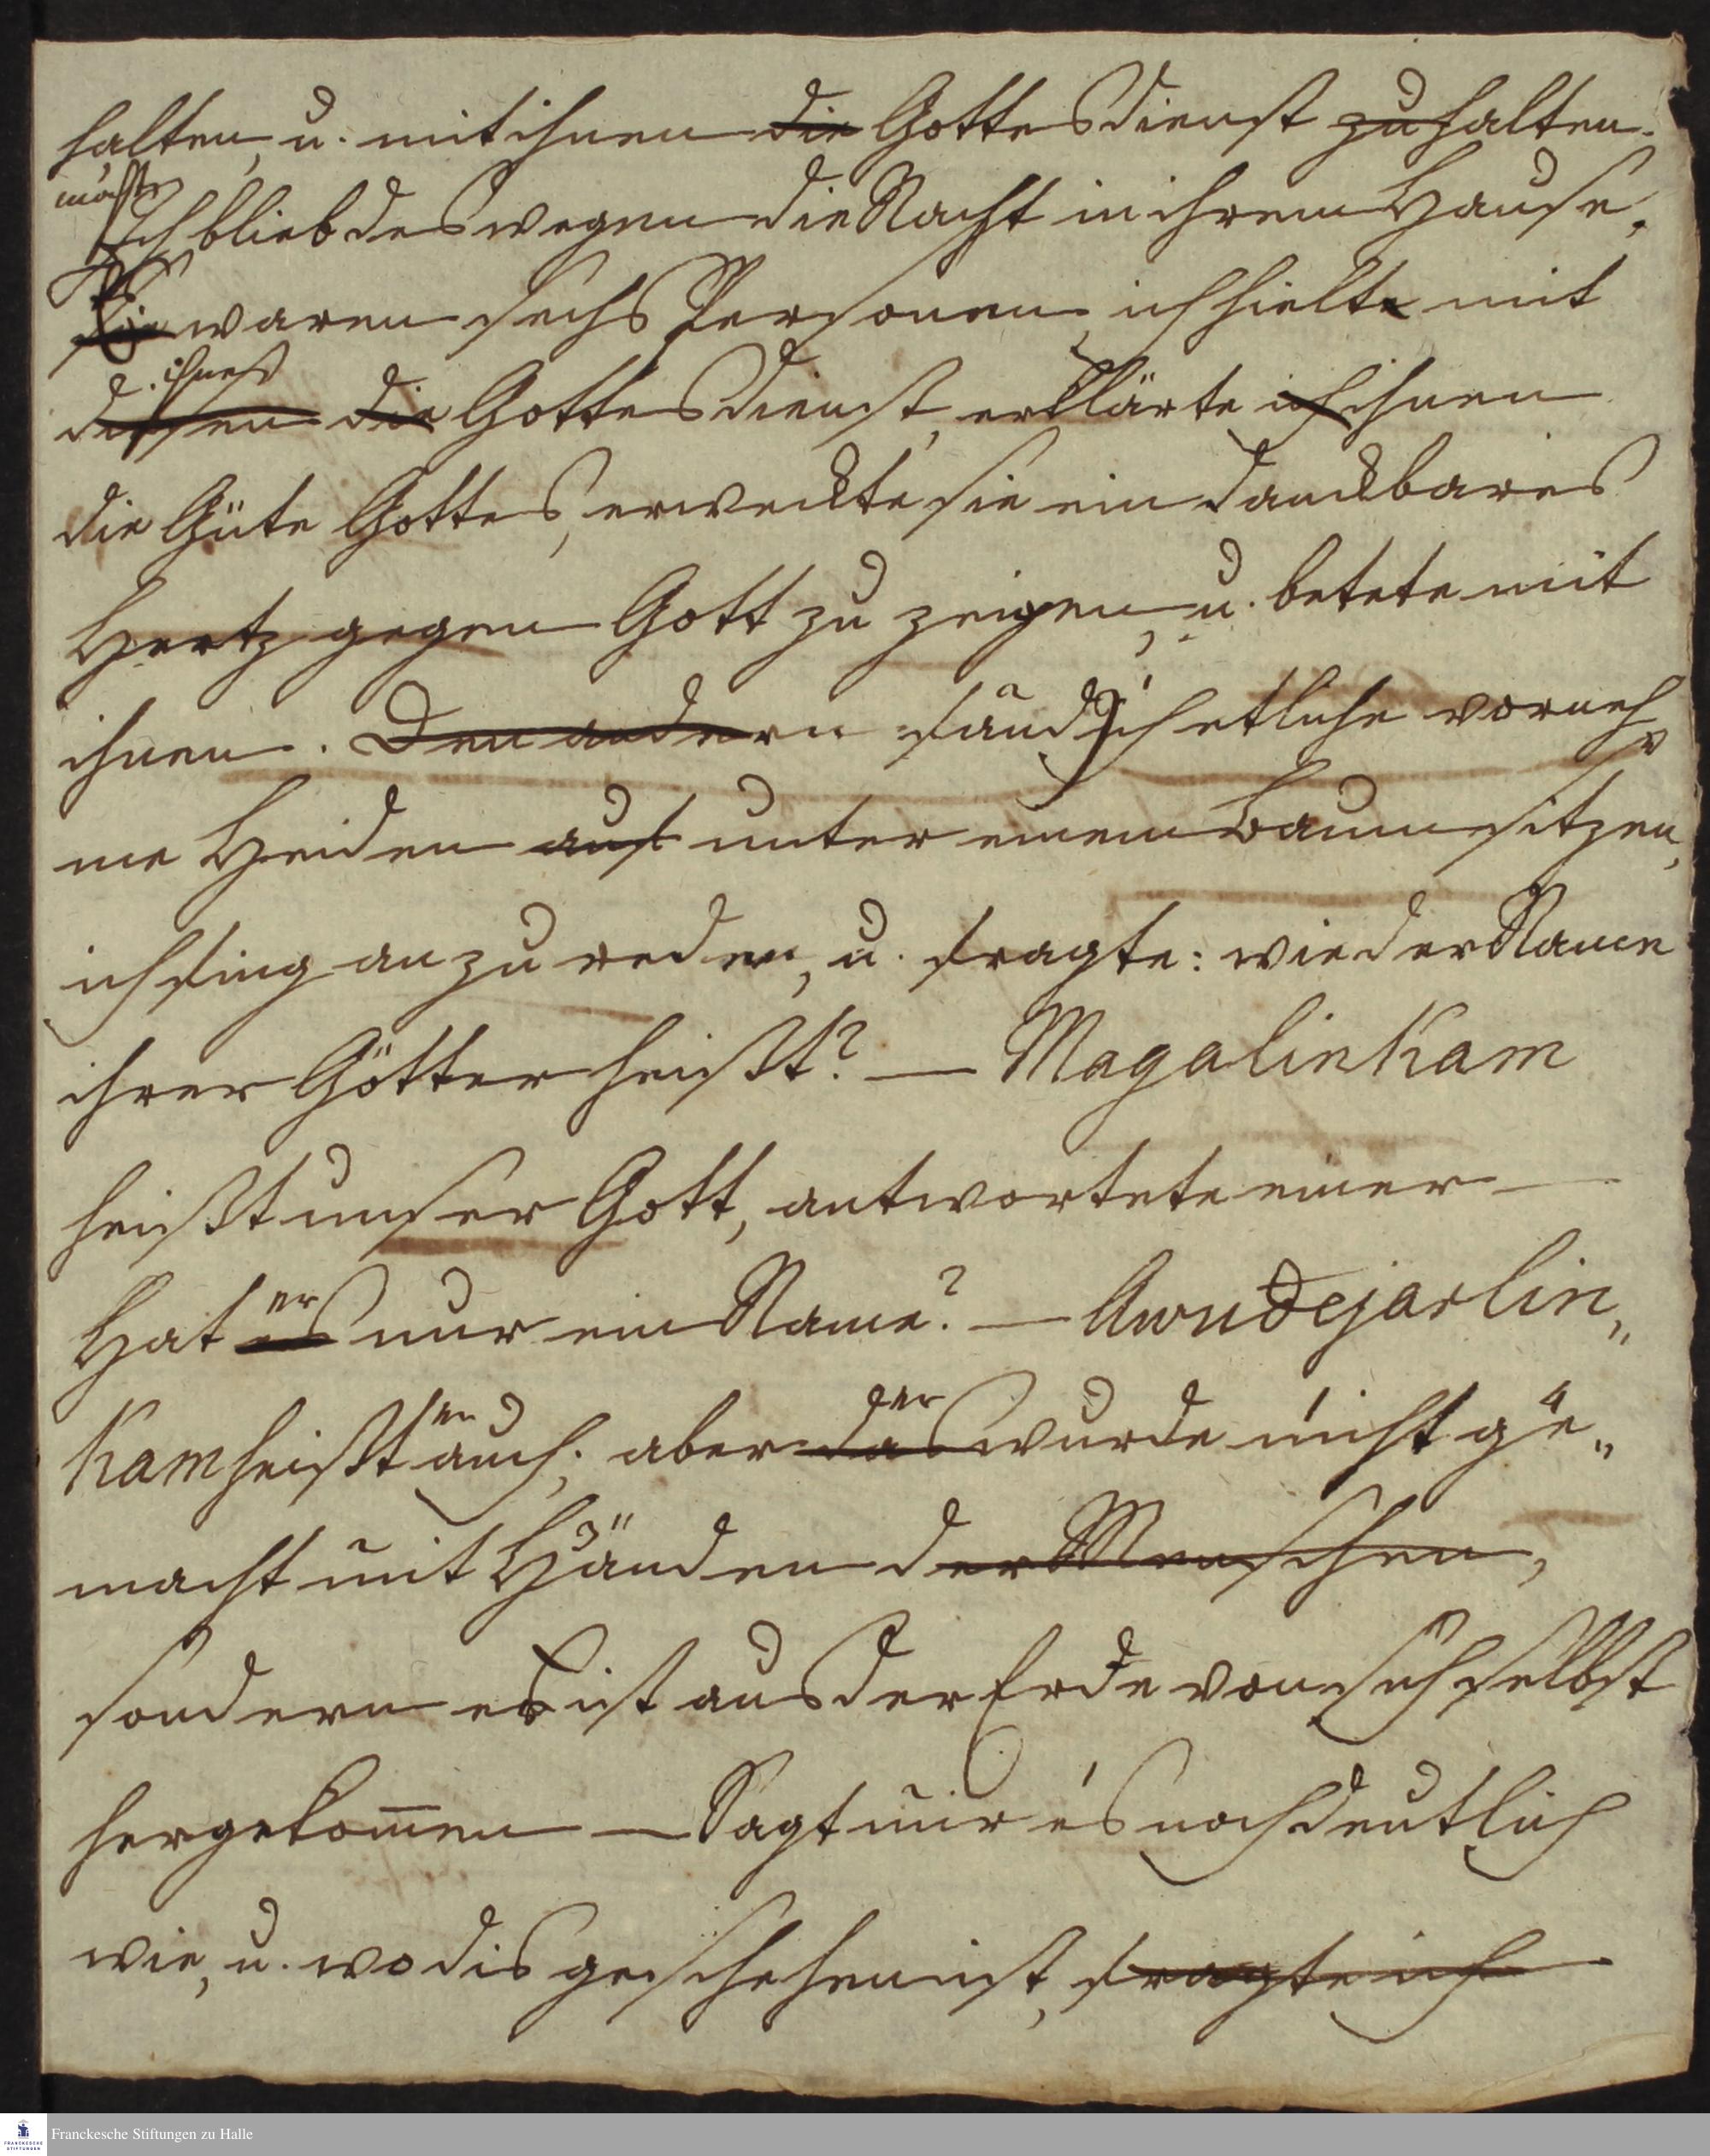 halten, u. mit ihnen die Gottesdienst zu halten.
möchte
Ich blieb deswegen die Nacht in ihrem Hause.
Es
Sie waren sechs Personen, ich hielte mit
ihnen
diesen die Gottesdienst, erklärte ich ihnen
die Güte Gottes, erweckte sie ein danckbares
Hertz gegen Gott zu zeigen, u. betete mit
ihnen. Den andern fand ich etliche vorneh-
me Heiden auf unter einem Baum sitzen,
ich fing an zu reden, u. fragte: wie der Name
ihrer Götter heißt? — Magalinkam
heißt unser Gott, antwortete einer —
er
Hat es nur ein Name? — Awudejarlin„
er der
kam heißt auch, aber das wurde nicht ge„
macht mit Händen der Menschen,
sondern es ist aus der Erde von sich selbst
hergekom̄en — Sagt mir es noch deutlich
wie, u. wo dis geschehen ist, fragte ich
Franckesche Stiftungen zu Halle